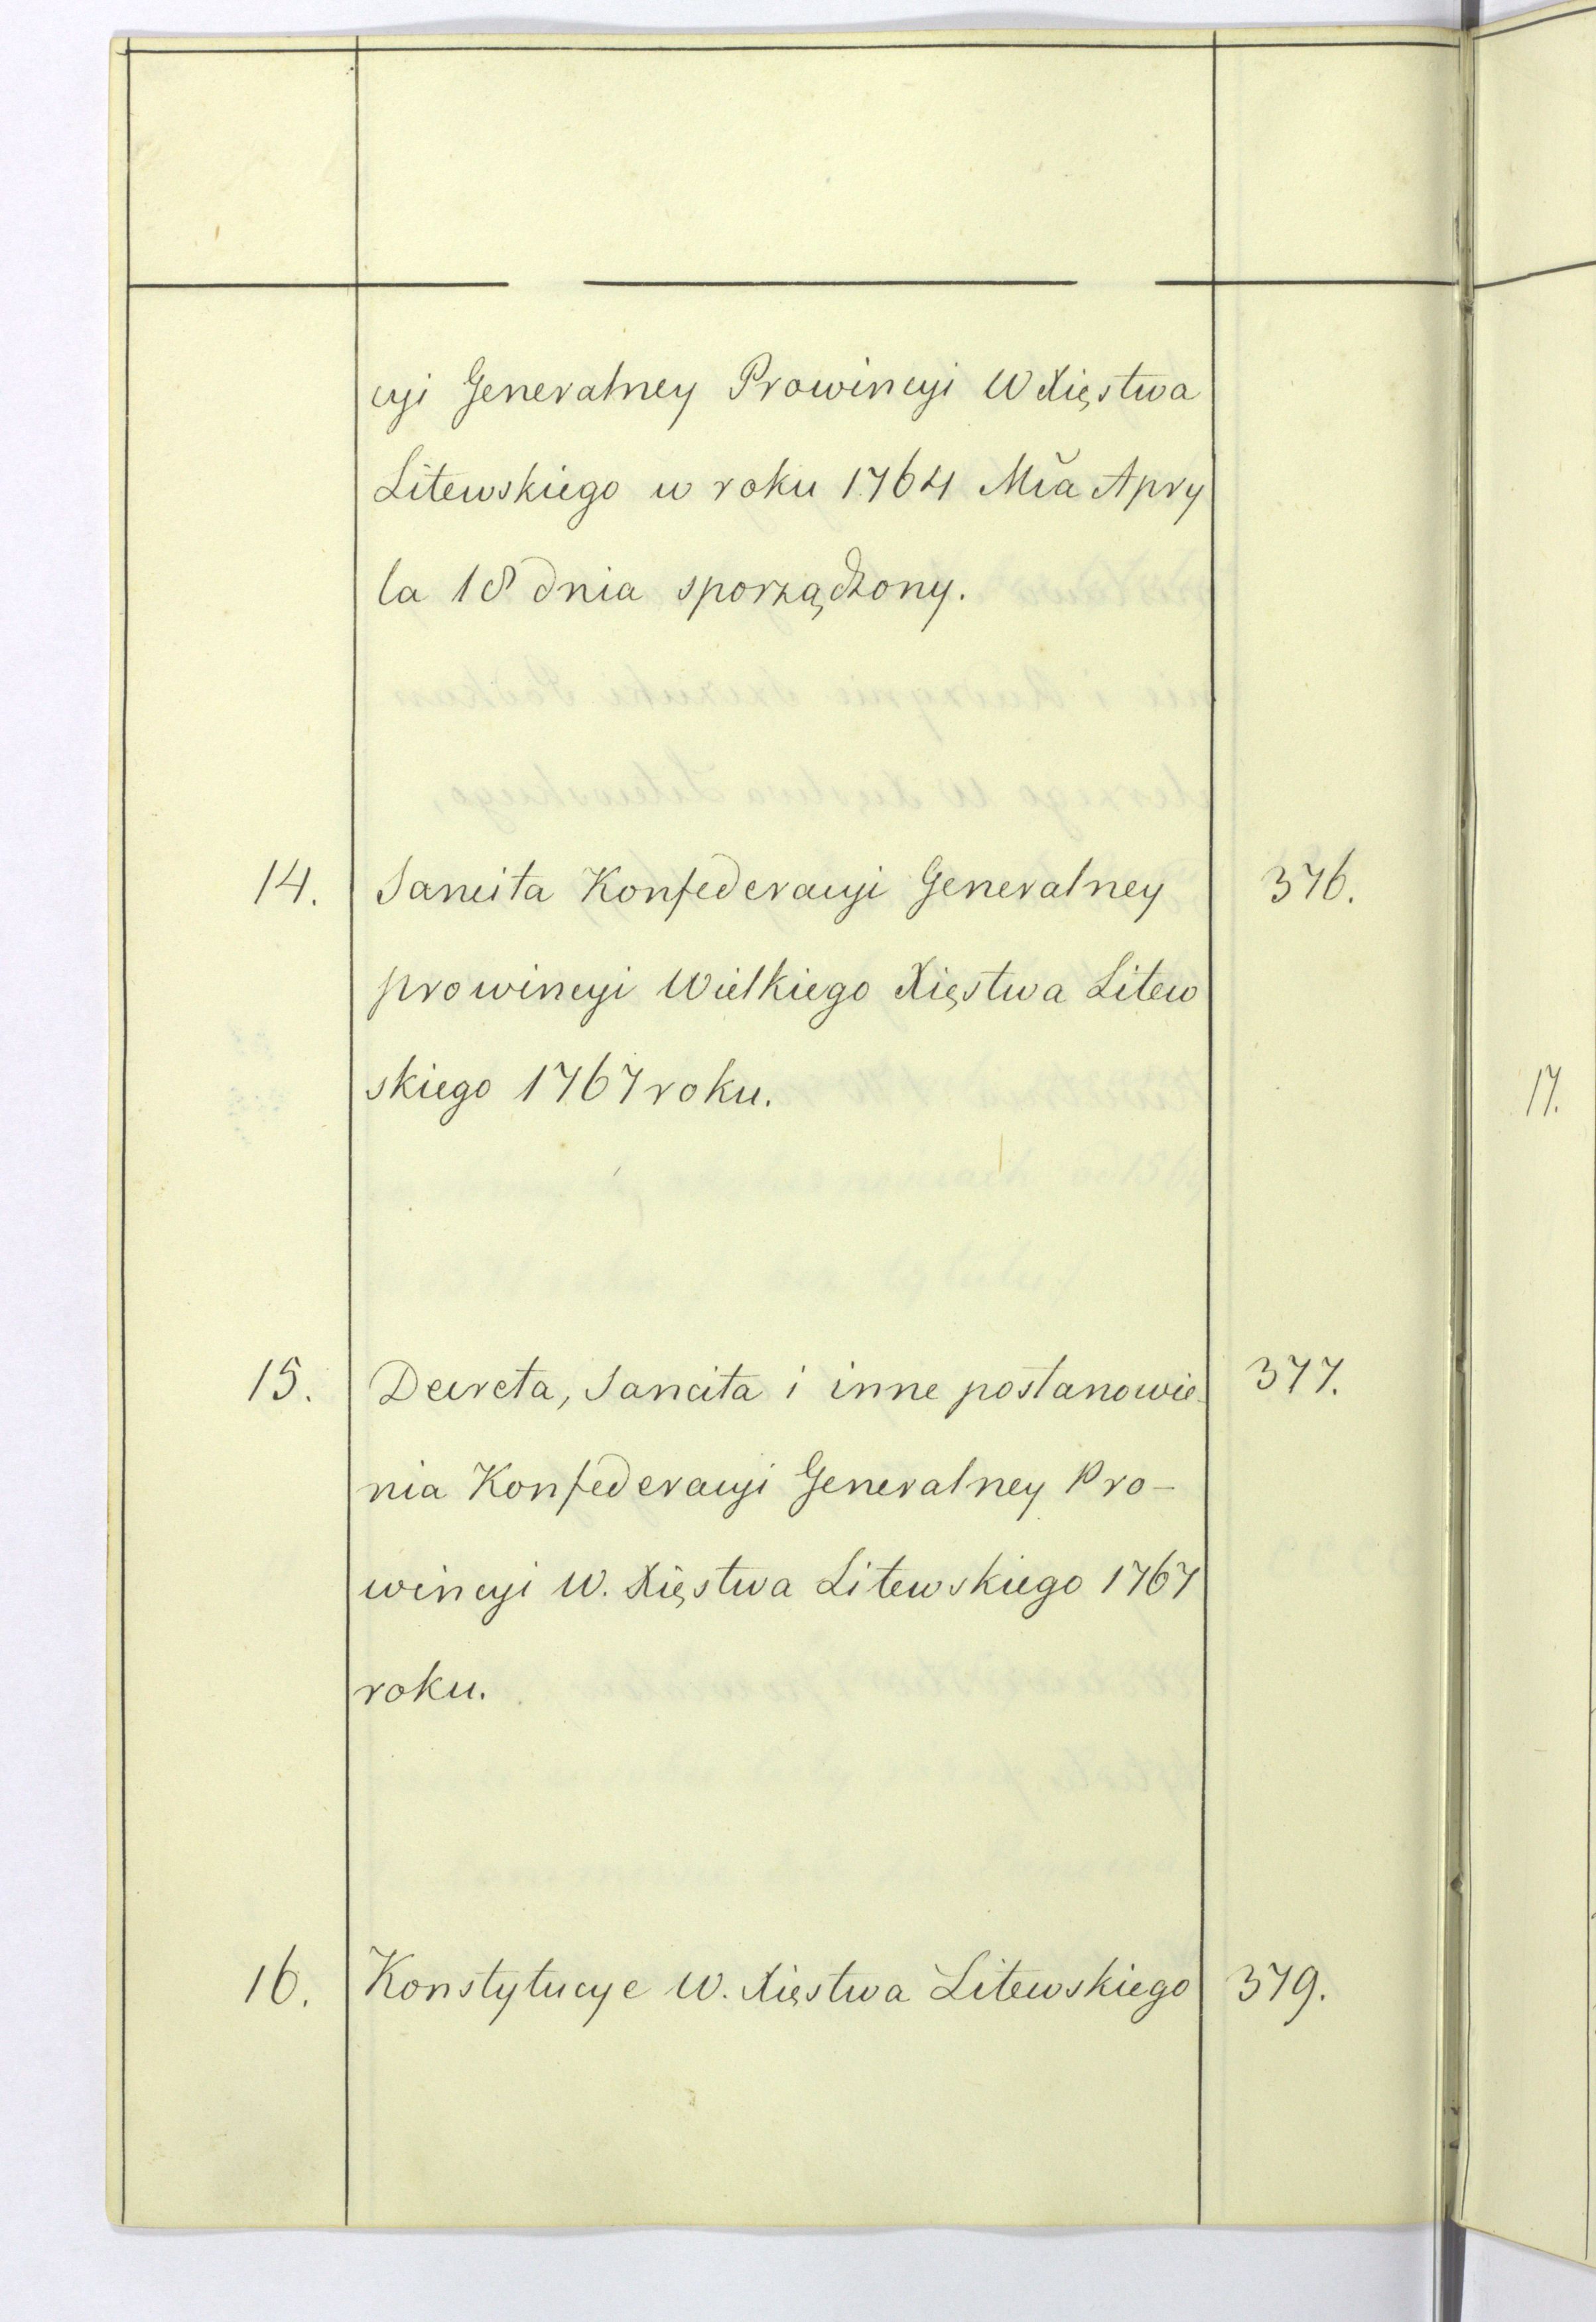 cyi Generalney Prowincyi W Xięstwa
Litewskiego w roku 1764 Mĩa Apry
la 18 dnia sporządzony.
14. Sancita Konfederacyi Generalney 376.
prowincyi Wielkiego Xięstwa Litew
skiego 1767 roku.
15. Decreta, Sancita i inne postanowie 377.
nia Konfederacyi Generalney Pro-
wincyi W. Xięstwa Litewskiego 1767
roku.
16. Konstytucye W. Xięstwa Litewskiego 379.
17.